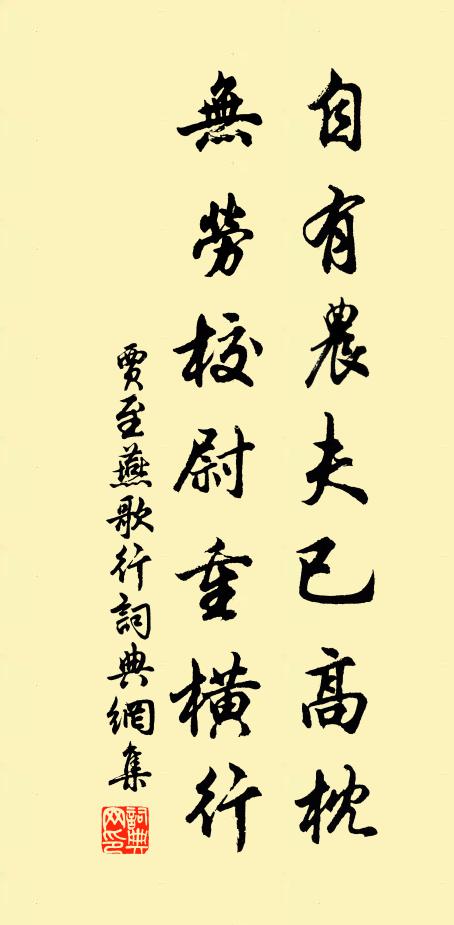 自有農夫已高枕
無勞校尉重橫行
賈至燕歌行詞典網集
詞典網印